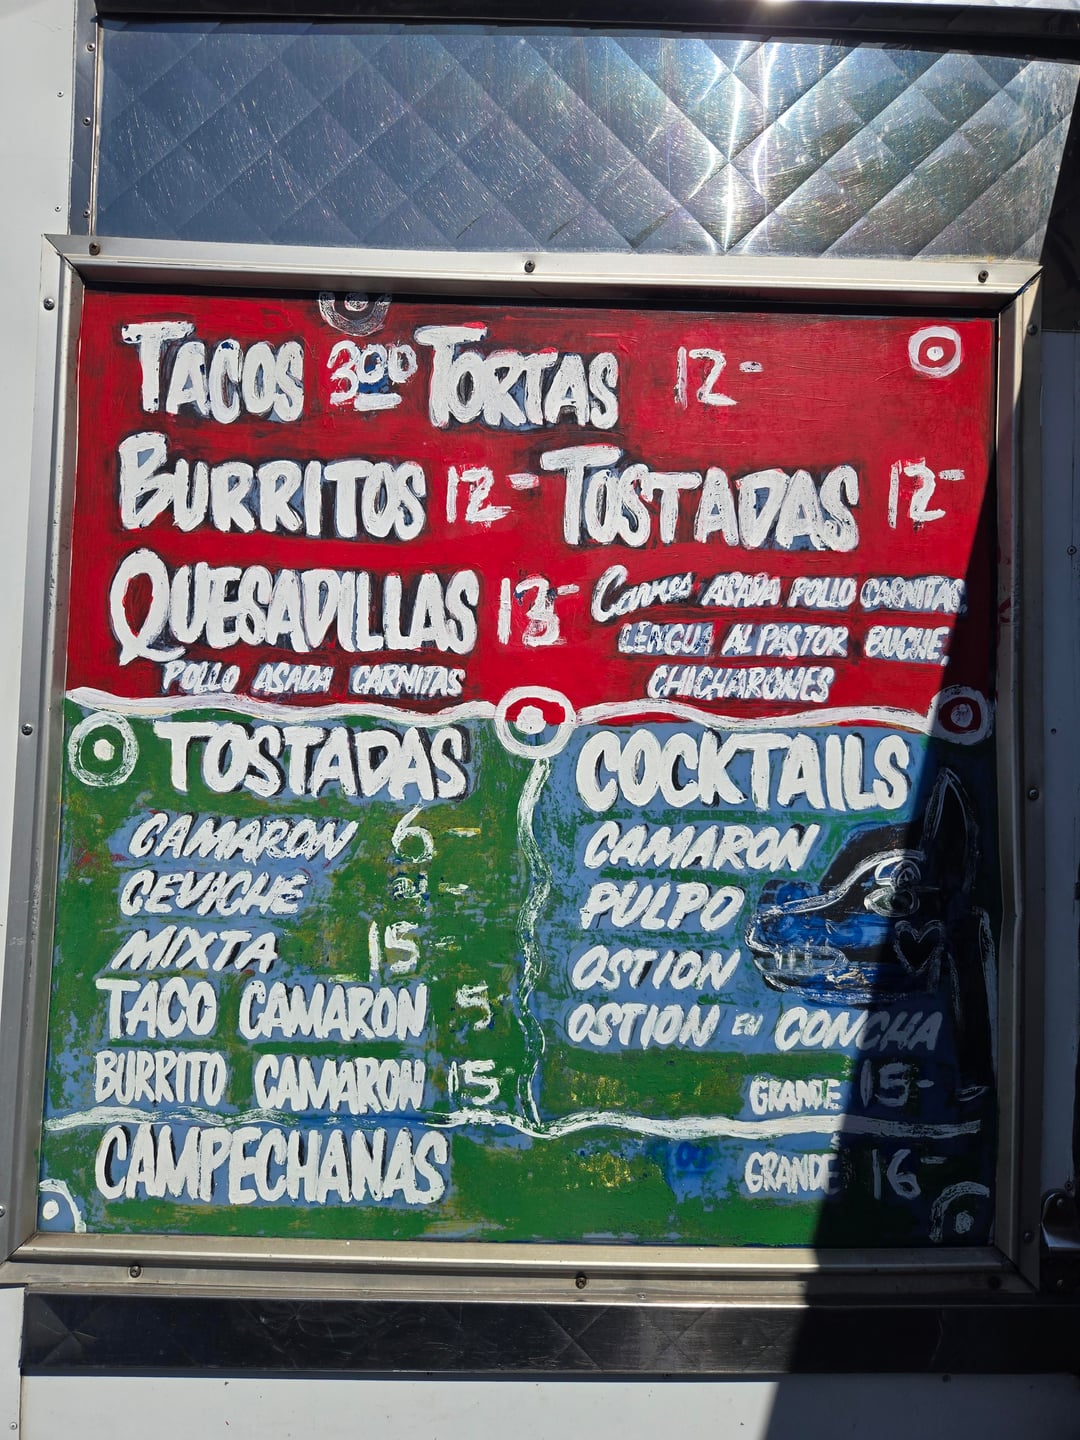 TACOS 300 TORTAS 12-
BURRITOS 12- TOSTADAS 12-
QUESADILLAS 13-
POLLO ASADA CARNITAS
Carnes ASADA POLLO CARNITAS
LENGUA AL PASTOR BUCHE,
CHICHARONES
TOSTADAS
CAMARON 6-
CEVICHE
MIXTA 15-
TACO CAMARON 5-
BURRITO CAMARON 15-
COCKTAILS
CAMARON
PULPO
OSTION
OSTION EN CONCHA
GRANDE 15-
CAMPECHANAS GRANDE 16-